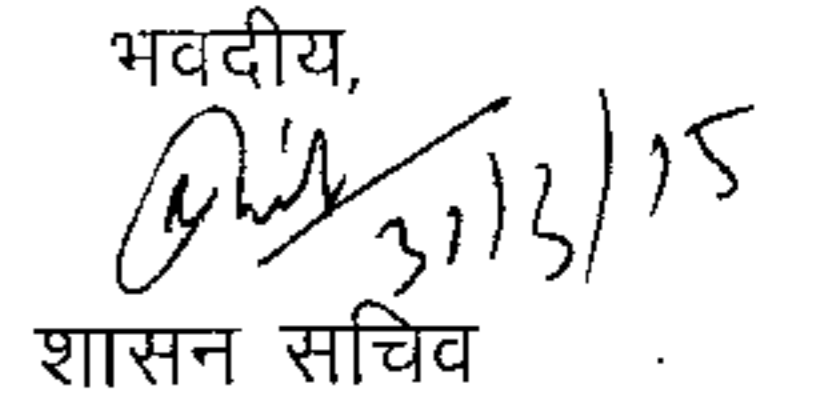 भवदीय,
31/3/15
शासन सचिव